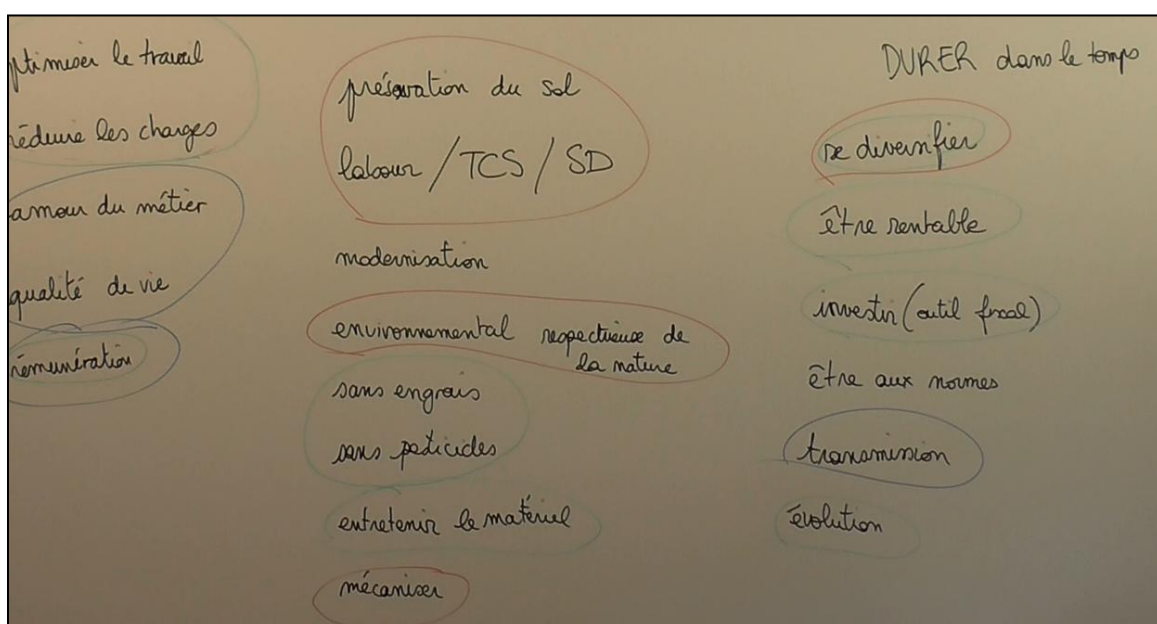 ptimiser le travail
réduire les charges
amour du métier
qualité de vie
rémunération
préservation du sol
labour / TCS / SD
modernisation
environnemental respectueuse de
la nature
sans engrais
sans pesticides
entretenir le matériel
mécaniser
DURER dans le temps
se diversifier
être rentable
investir (outil fiscal)
être aux normes
transmission
évolution